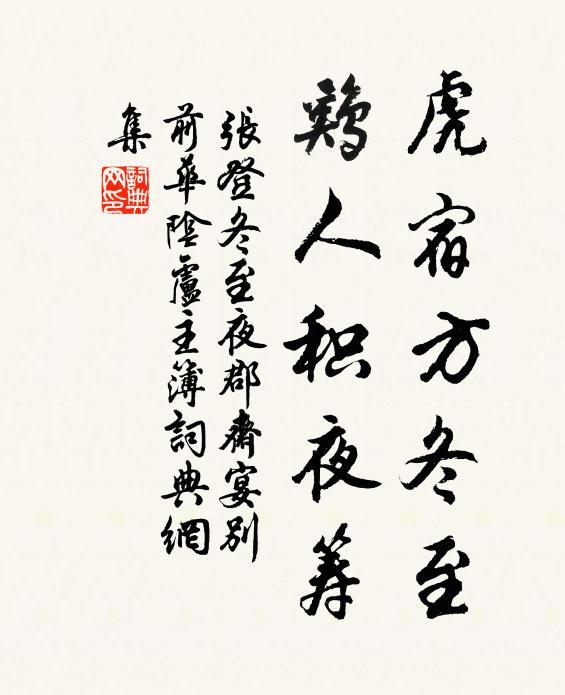 虎宿方冬至
鷄人积夜筹
張登冬至夜郡齋宴别
前華陰盧主簿詞典網
集
詞典
网印